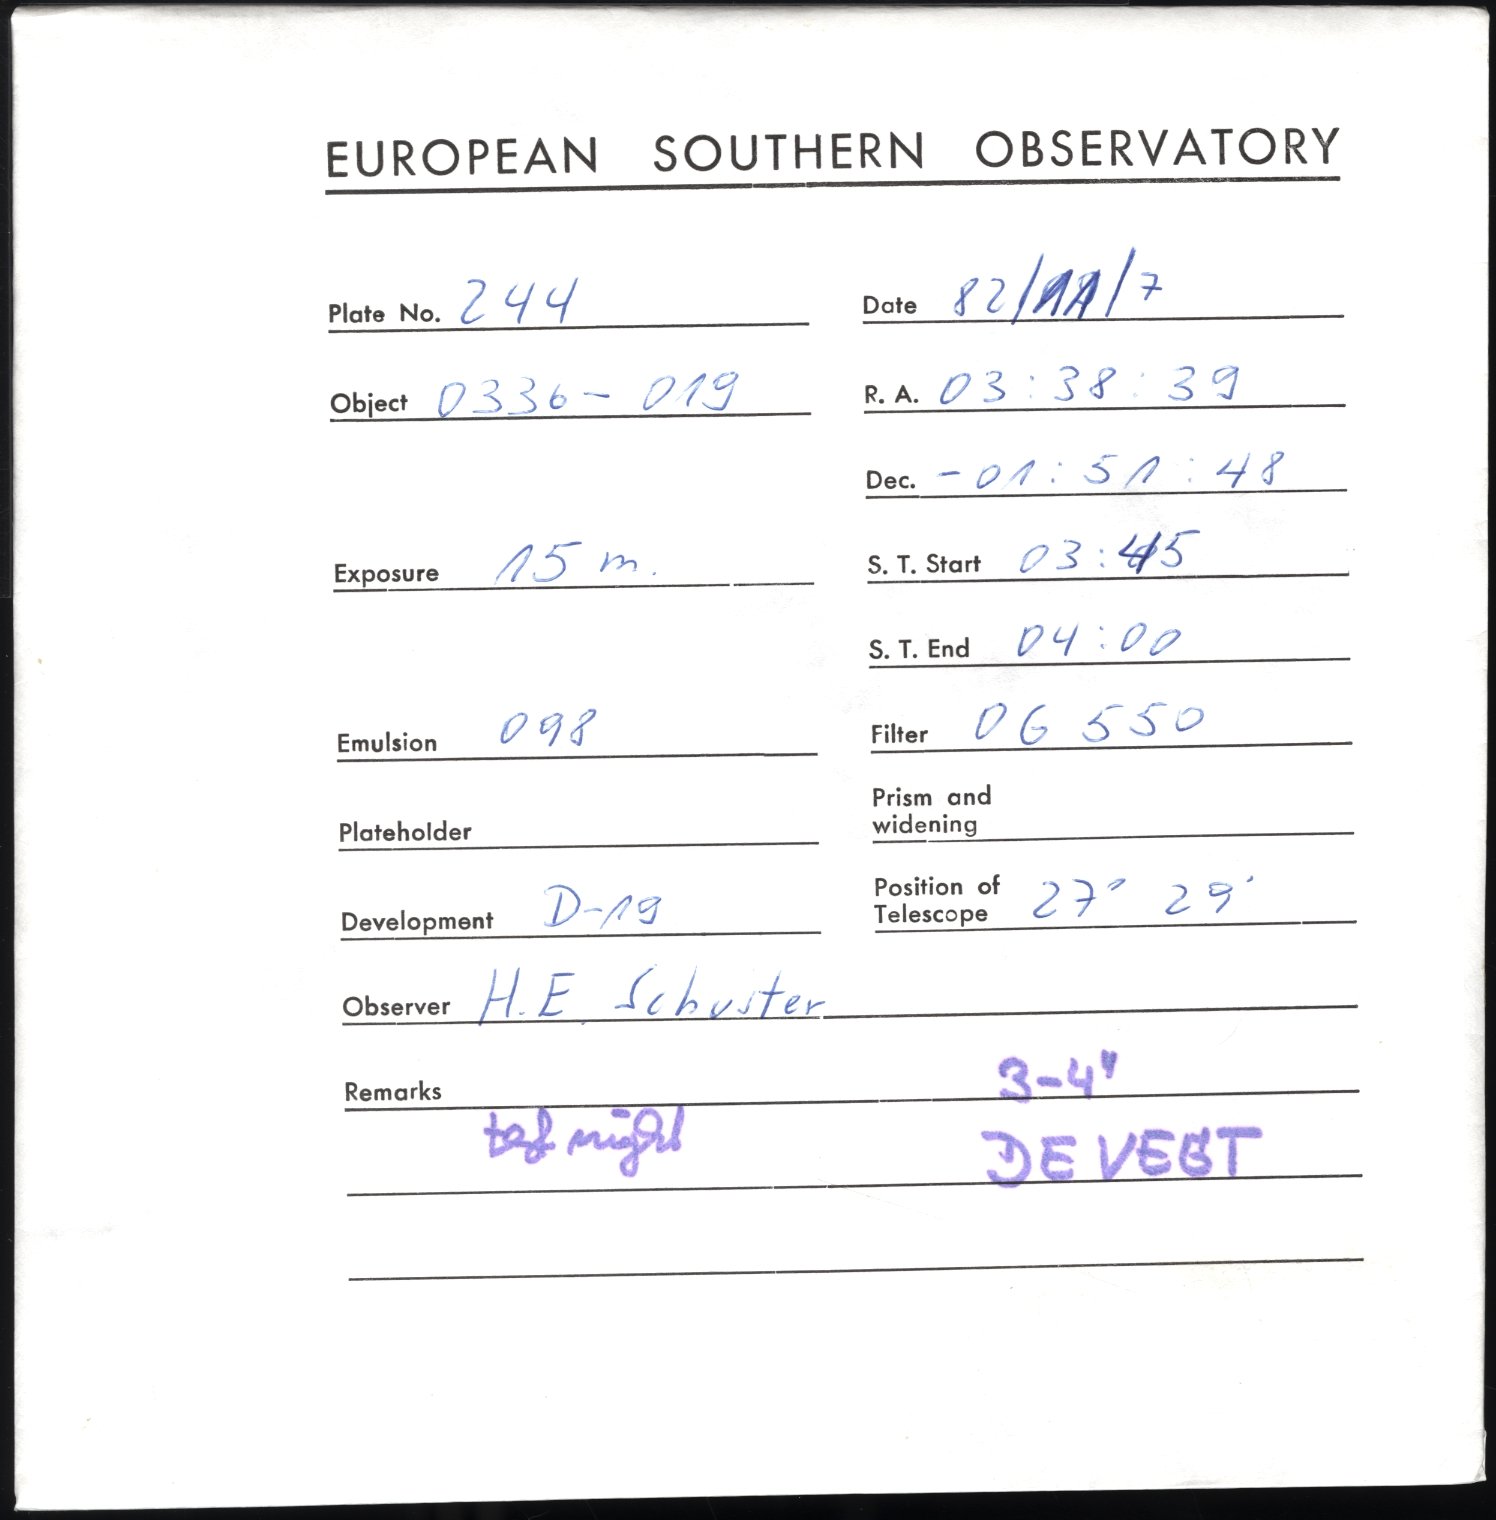 EUROPEAN SOUTHERN OBSERVATORY
Plate No. 244 Date 82/11/7
Object 0336-019 R. A. 03:38:39
Dec. -01:51:48
Exposure 15 m. S. T. Start 03:45
S. T. End 04:00
Emulsion 098 Filter OG 550
Plateholder Prism and
widening
Development D-19 Position of
Telescope 27° 29'
Observer H.E. Schuster
Remarks 3-4"
night DE VEGT